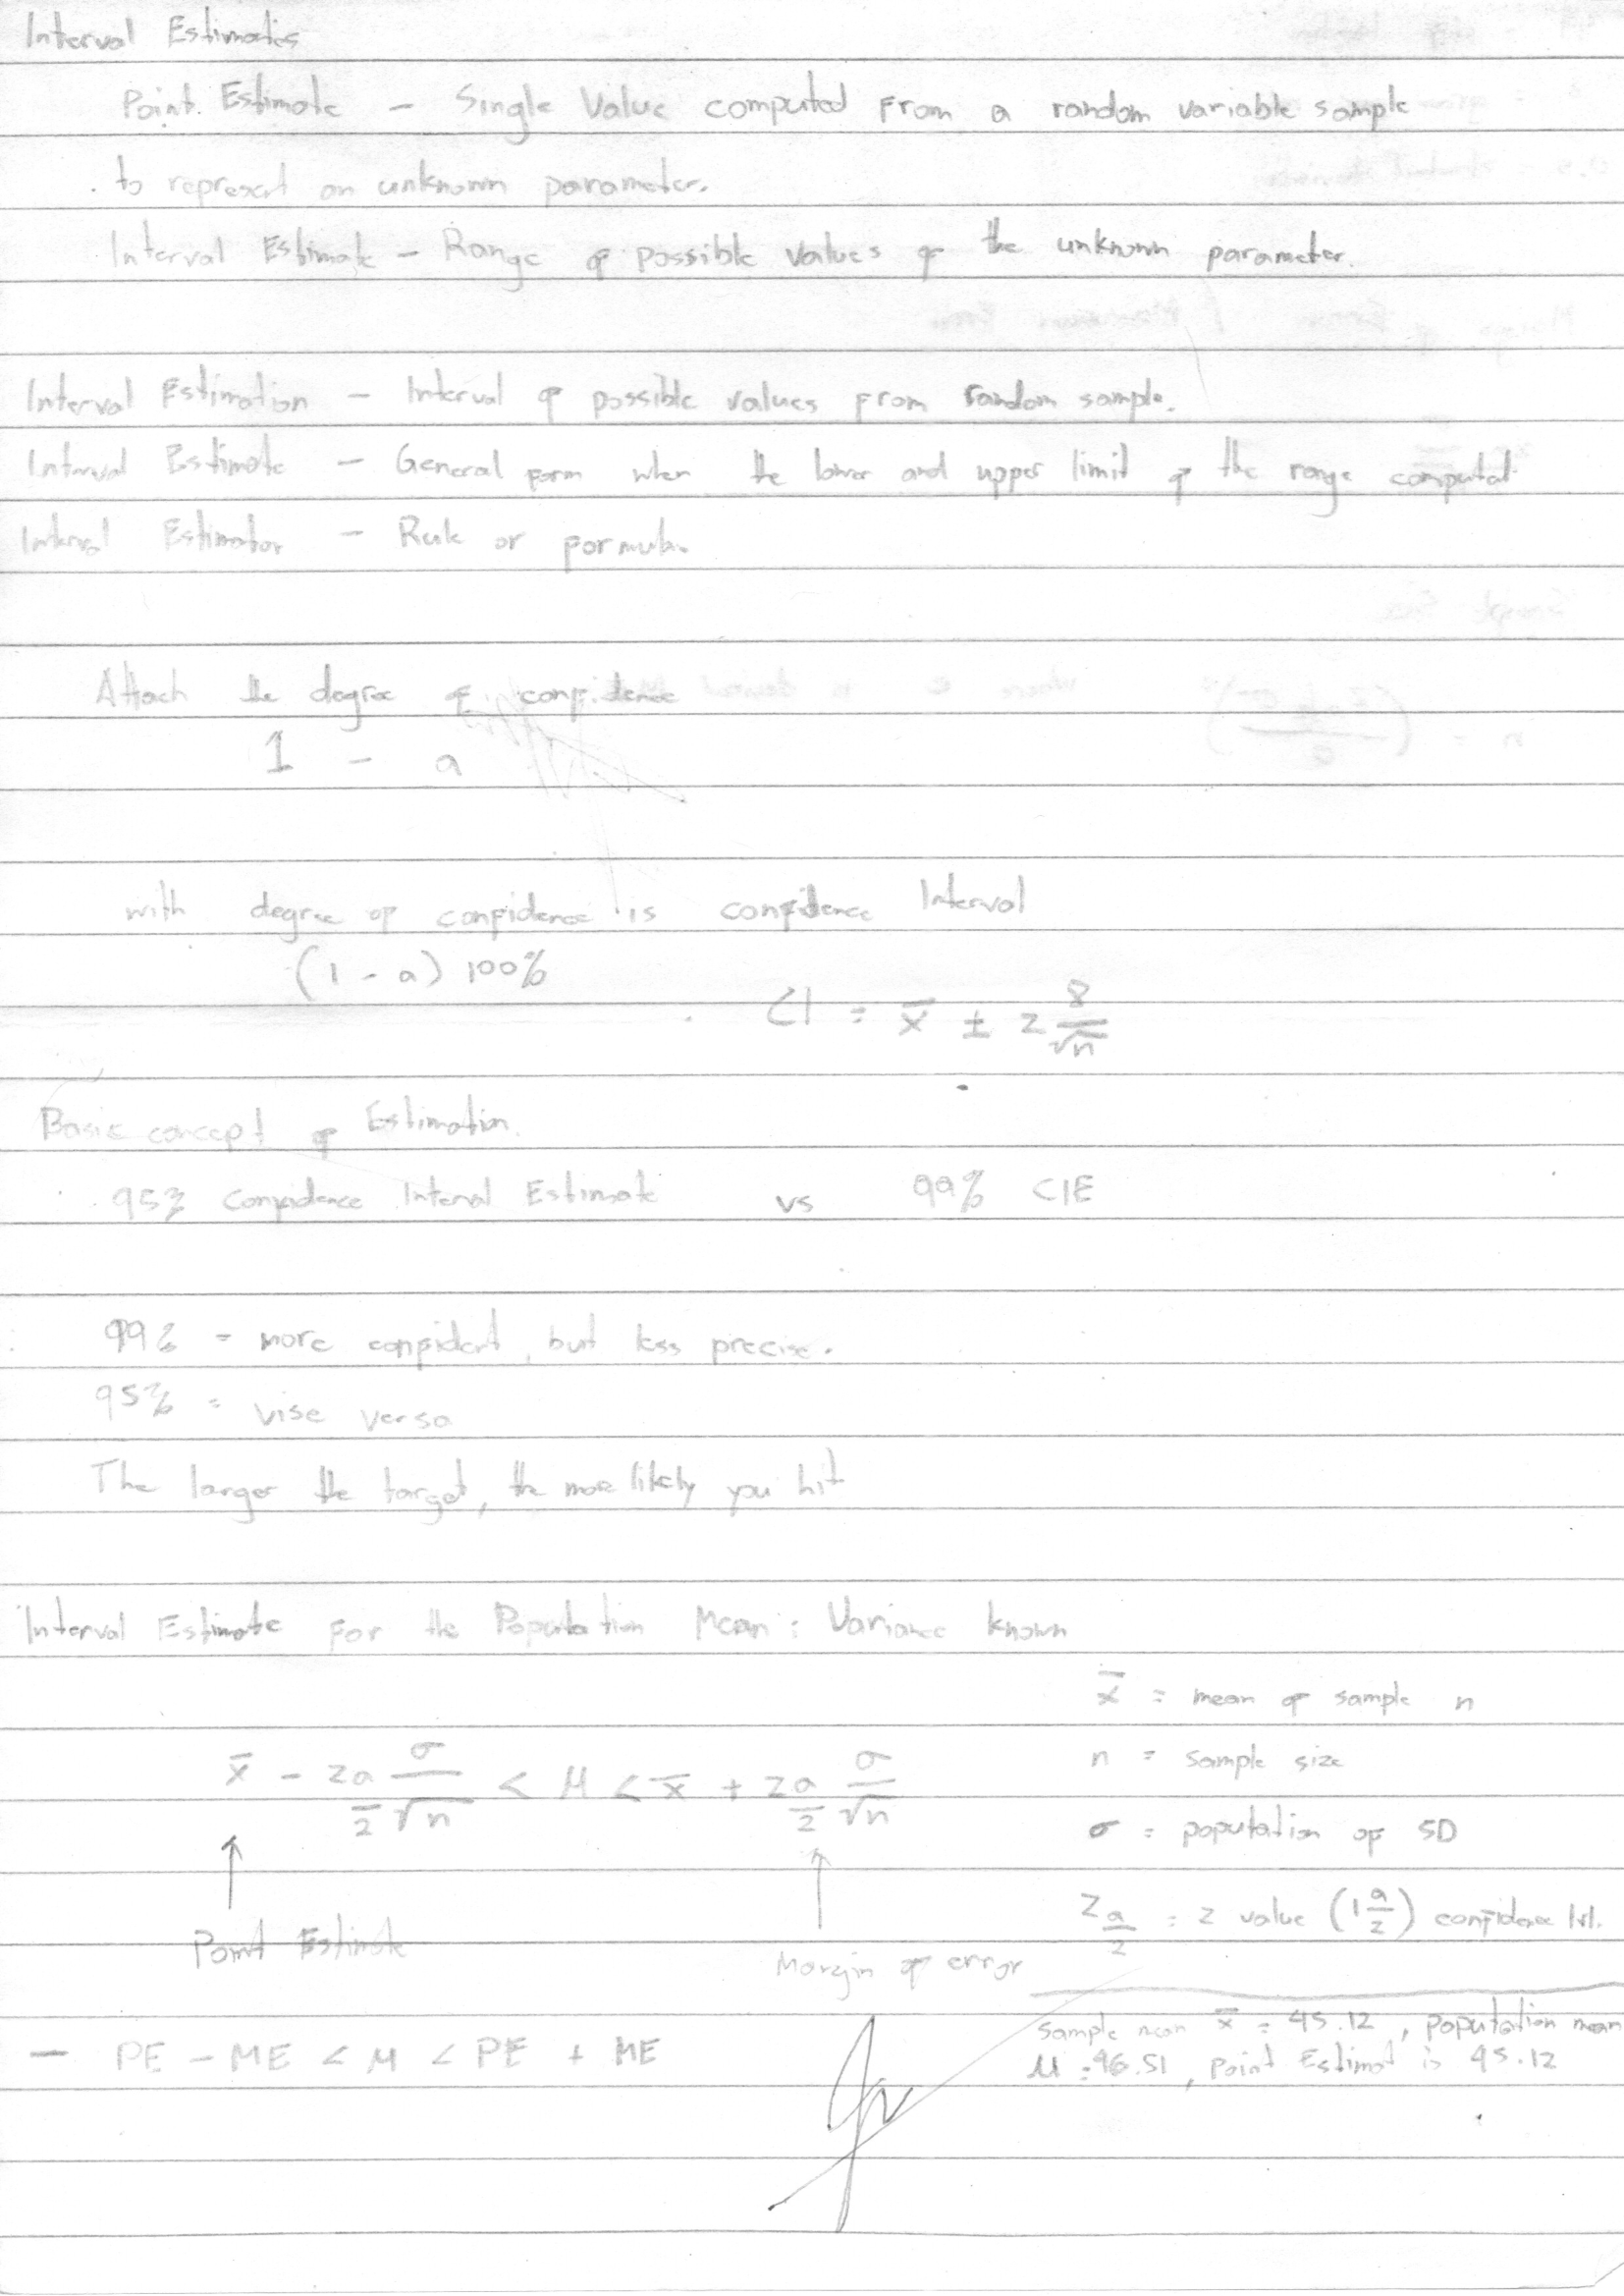 Interval Estimates
Point Estimate - Single Value computed from a random variable sample
to represent an unknown parameter.
Interval Estimate - Range of possible values of the unknown parameter.
Interval Estimation - Interval of possible values from random sample.
Interval Estimate - General form when the lower and upper limit of the range computat
Interval Estimator - Rule or formula.
Attach the degree of confidence
1 - a
with degree of confidence is confidence Interval
(1 - a) 100%
CI = x̄ ± z 8/√n
Basic concept of Estimation.
95% Confidence Interval Estimate vs 99% CIE
99% = more confident, but less precise.
95% = vise versa
The larger the target, the more likely you hit
Interval Estimate for the Population Mean: Variance known
x̄ = mean of sample n
x̄ - z a/2 σ/√n < μ < x̄ + z a/2 σ/√n
n = sample size
σ = population of SD
z a/2 = z value (1 a/2) confidence lvl.
Point Estimate
Margin of error
- PE - ME < μ < PE + ME
Sample mean x̄ = 45.12, population mean
μ = 46.51, Point Estimat is 45.12